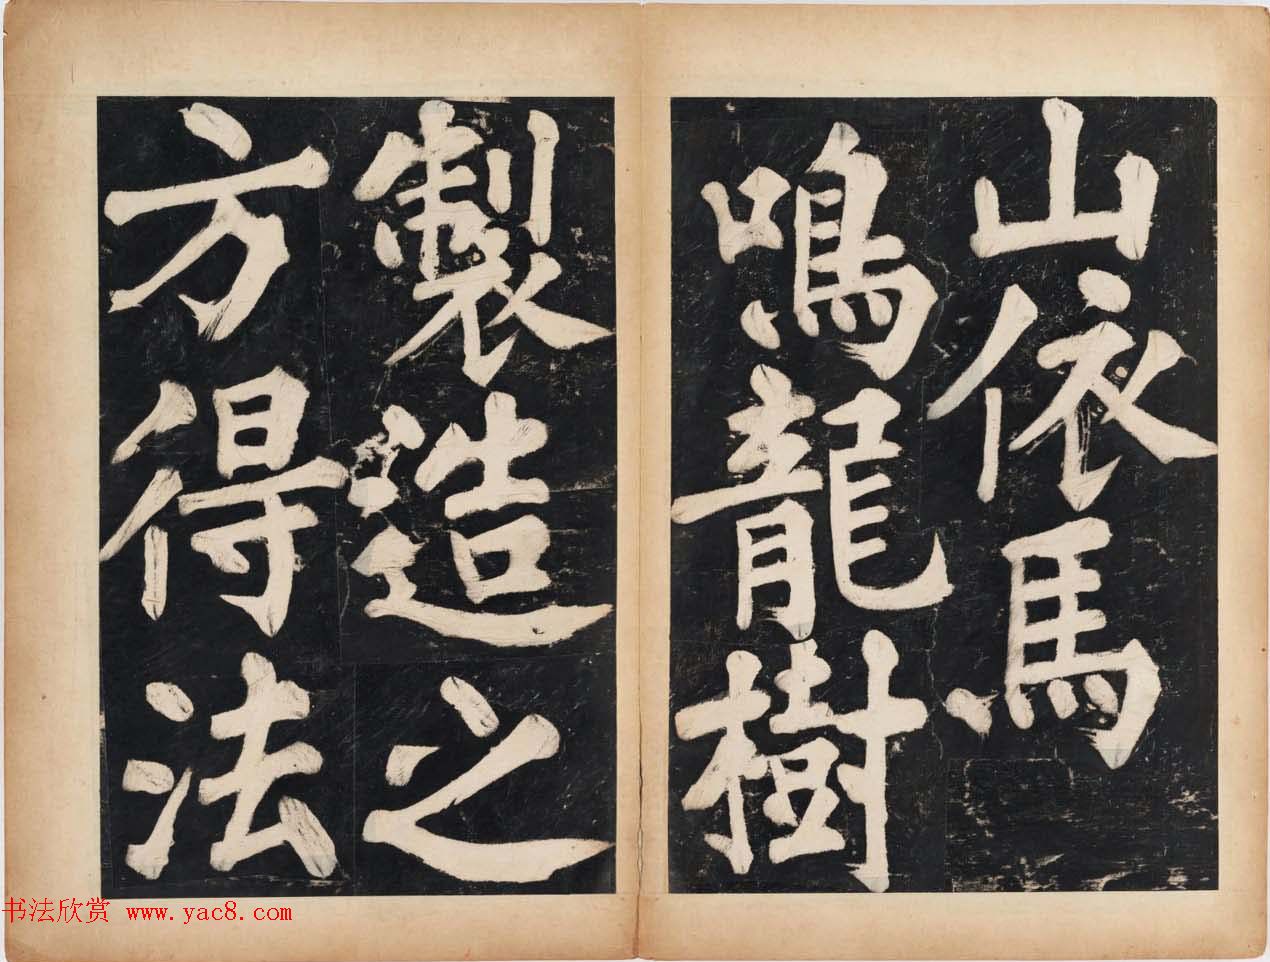 山依馬
鳴龍樹
製造之
方得法
书法欣赏 www.yac8.com